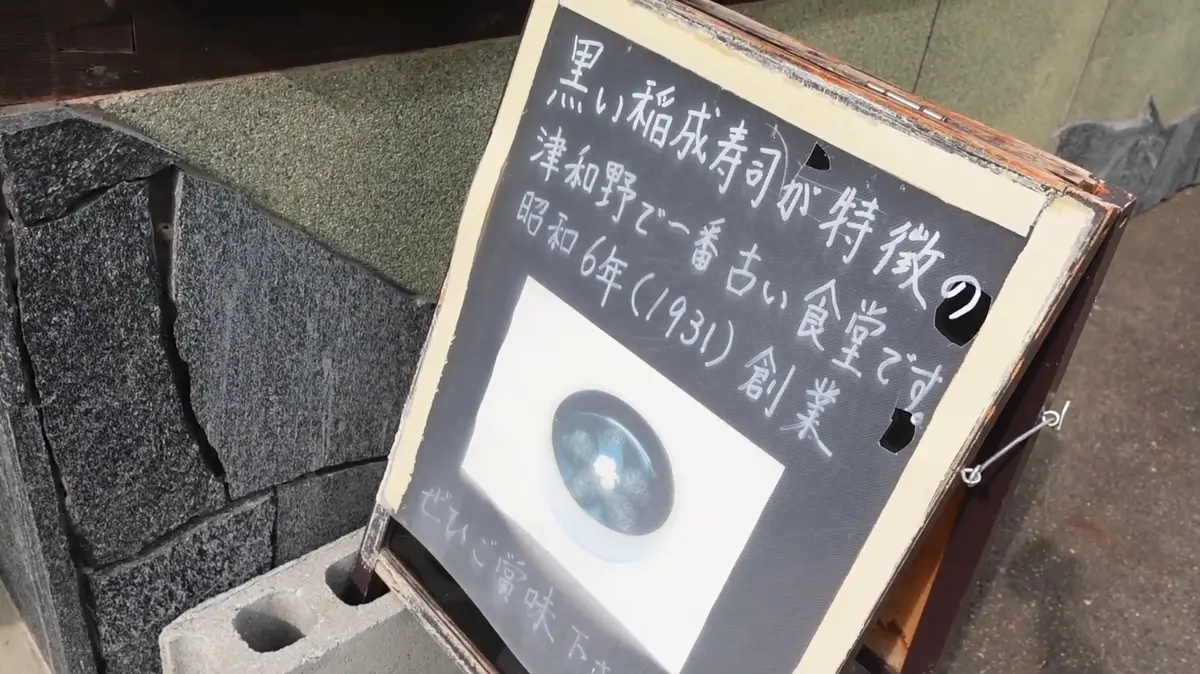 黒い稲成寿司が特徴の
津和野で一番古い食堂です。
昭和6年(1931)創業
ぜひご賞味下さ